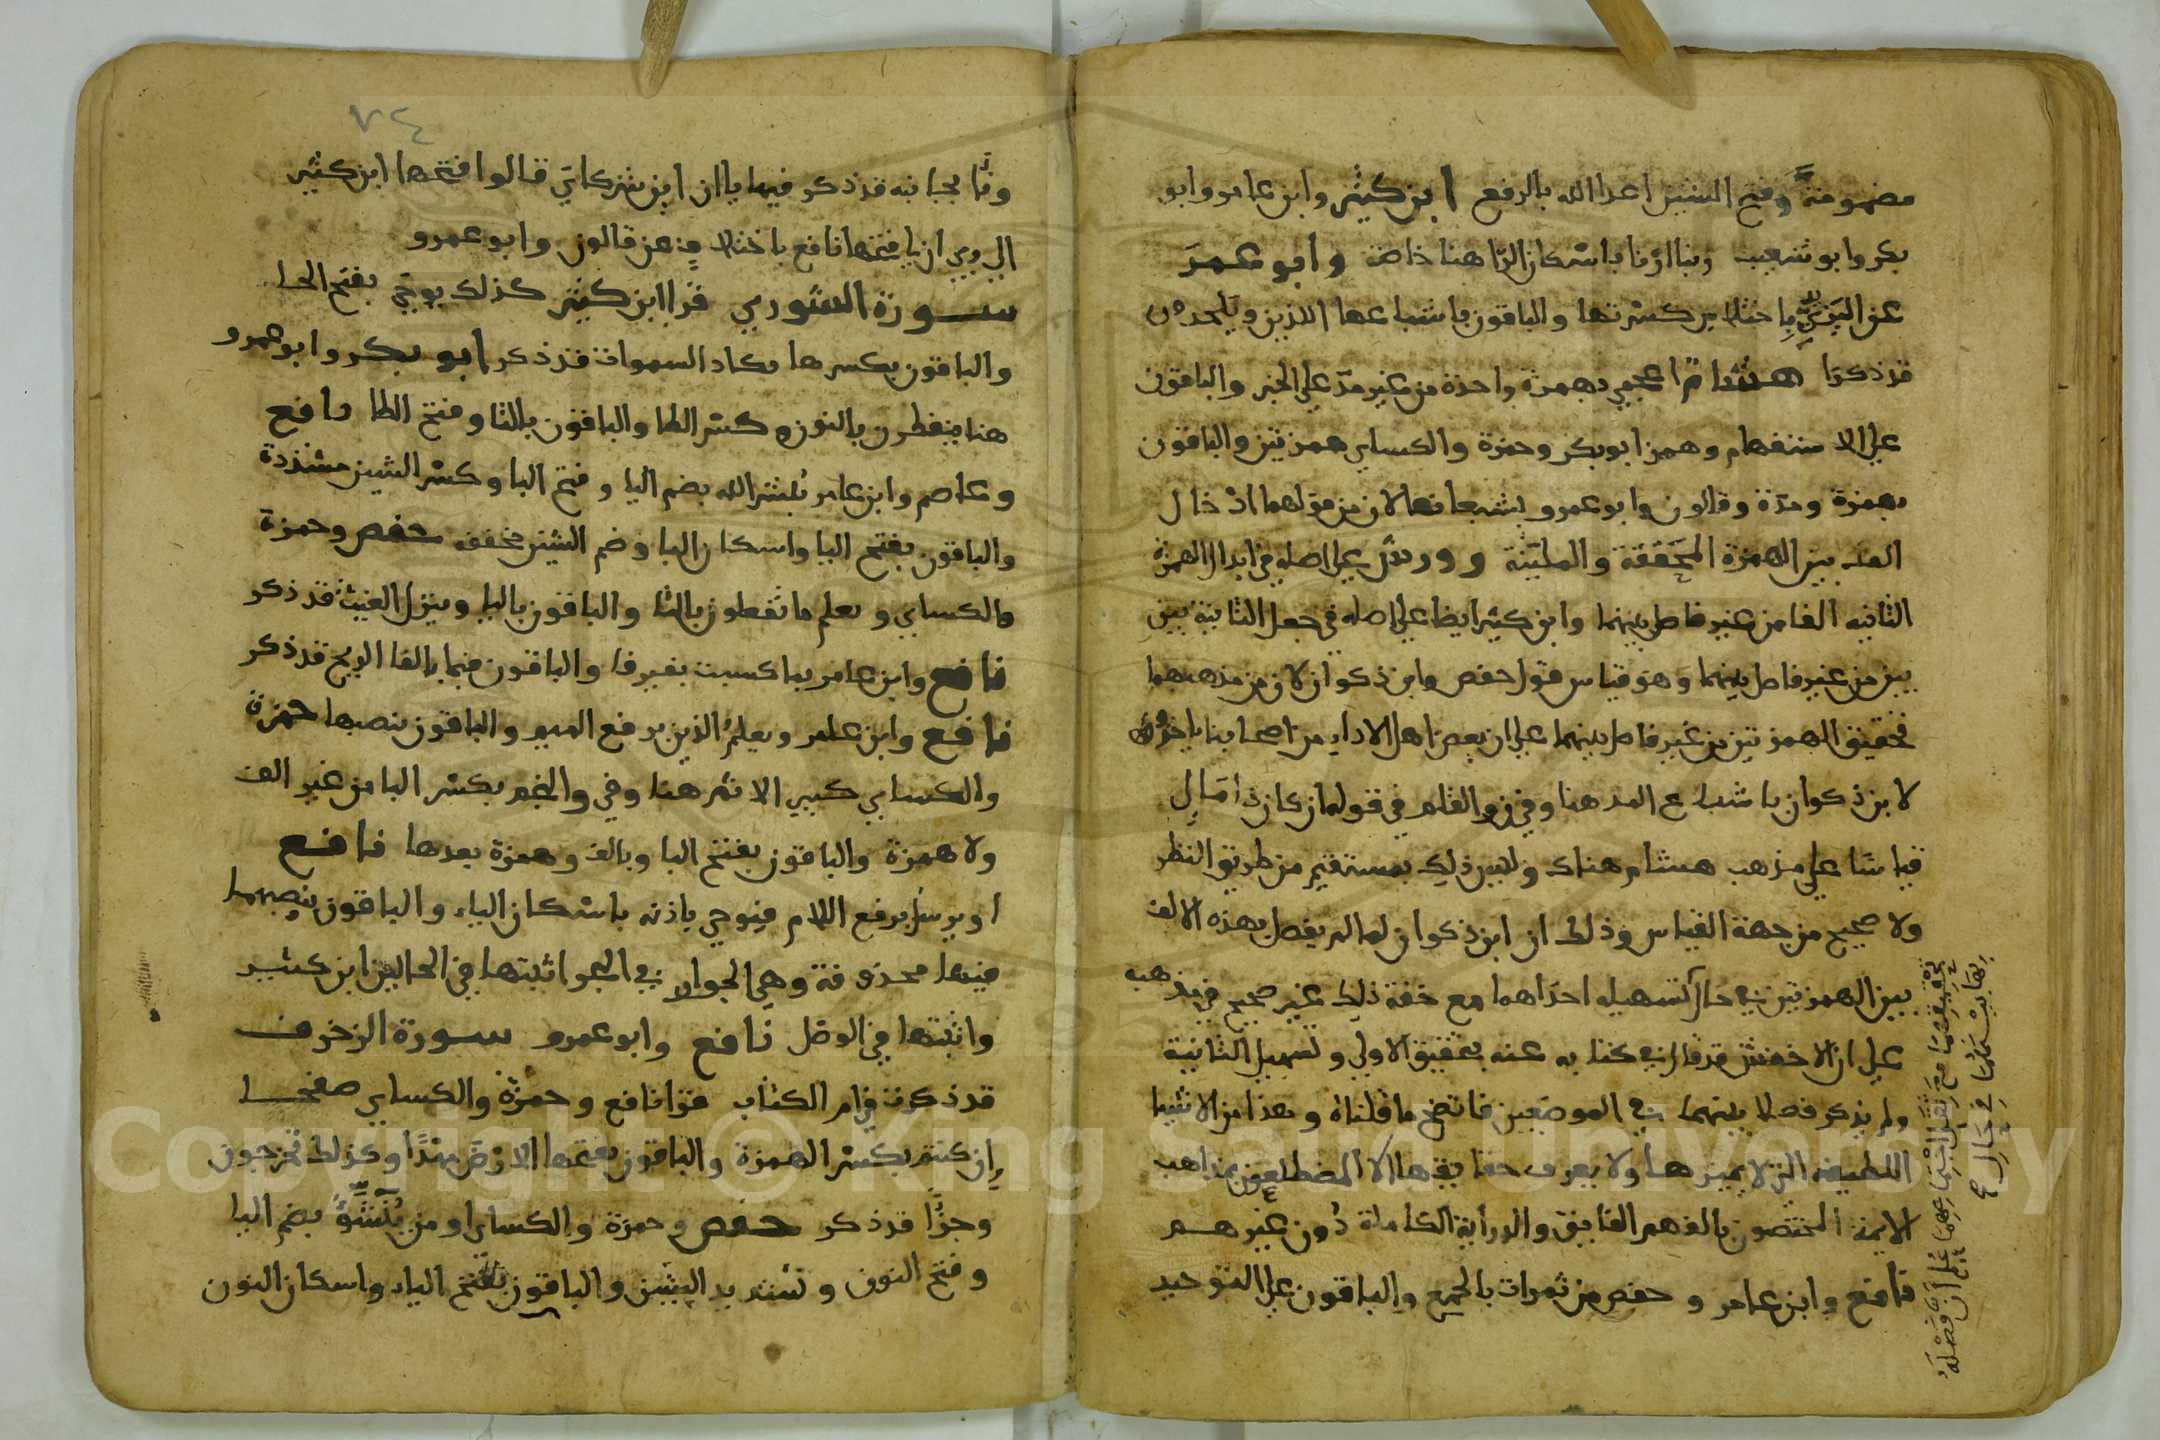 مضمومة وفتح الشين اعدا الله بالرفع ابن كثير وابن عامر وابو
بكر وابو شعيب ربنا ارنا باسكان الرا هنا خاصة وابو عمرَ
عن اليزيدي باختلاس كسرتها والباقون باشباعها اللذين ويلحدون
قد ذكرا هشام اعجمي بهمزة واحدة من غير مد علي الخبر والباقون
علي الاستفهام وهمز ابو بكر وحمزة والكساي همزتين والباقون
بهمزة ومدة وقالون وابو عمرو يشبعانها لان من قولهما ادخال
الف بين الهمزة المحققة والملينة وورش علي اصله في ابدال الهمزة
الثانيه الفا من غير فاصل بينهما وابن كثير ايضا علي اصله في جعل الثانية بين
بين من غير فاصل بينهما وهو قياس قول حفص وابن ذكوان لان من مذهبهما
تحقيق الهمزتين من غير فاصل بينهما علي ان بعض اهل الاداء من اصحابنا ياخذ
لابن ذكوان باشباع المد هنا وفي ن والقلم في قوله ان كان ذا مال
قياسا علي مذهب هشام هناك وليس ذلك بمستقيم من طريق النظر
ولا صحيح من جهة القياس وذلك ان ابن ذكوان لما لم يفصل بهذه الالف
بين الهمزتين في حال تسهيله احداهما مع خفة ذلك غير صحيح في مذهبه
علي ان الاخفش قد قال في كتابه عنه بتحقيق الاولي وتسهيل الثانية
ولم يذكر فصلا بينهما في الموضعين فاتضح ما قلناه وهذا من الاشيا
اللطيفه التي لا يميزها ولا يعرف حقايقها الا المضطلعون بمذاهب
الايمة المختصون بالفهم الفايق والدراية الكاملة دون غيرهم
نافع وابن عامر وحفص من ثمرات بالجمع والباقون علي التوحيد
٧٤
ونأا بجانبه قد ذكر فيها ياان اين شركاي قالوا فتحها ابن كثير
الي ربي ان يا فتحها نافع باختلاف عن قالون وابو عمرو
سورة الشوري قرا ابن كثير كذلك يوحي بفتح الحا
والباقون بكسرها يكاد السموات قد ذكر ابو بكر وابو عمرو
هنا ينفطرن بالنون وكسر الطا والباقون بالتا وفتح الطا نافع
وعاصم وابن عامر يبشر الله بضم اليا وفتح البا وكسر الشين مشددة
والباقون بفتح اليا واسكان البا وضم الشين مخففة حفص وحمزة
والكساي ويعلم ما تفعلون بالتا والباقون باليا وينزل الغيث قد ذكر
نافع وابن عامر بما كسبت بغير فا والباقون فبما بالفا الريح قد ذكر
نافع وابن عامر ويعلمُ الذين برفع الميم والباقون بنصبها حمزة
والكساي كبير الاثم هنا وفي والنجم بكسر البا من غير الف
ولا همزة والباقون بفتح البا وبالف وهمزة بعدها نافع
او يرسل برفع اللام فيوحي باذنه باسكان الياء والباقون بنصبهما
فيها محذوفة وهي الجوار في البحر اثبتها في الحالين ابن كثير
واثبتها في الوصل نافع وابو عمرو سورة الزخرف
قد ذكرت في ام الكتاب قرا نافع وحمزة والكساي صفحا
اِن كنتم بكسر الهمزة والباقون بفتحها الارض مهدًا وكذلك تخرجون
وجزًا قد ذكر حفص وحمزة والكساي او من يُنَشَّؤُ بضم اليا
وفتح النون وتشديد الشين والباقون بفتح الياء واسكان النون
Copyright © King Saud University